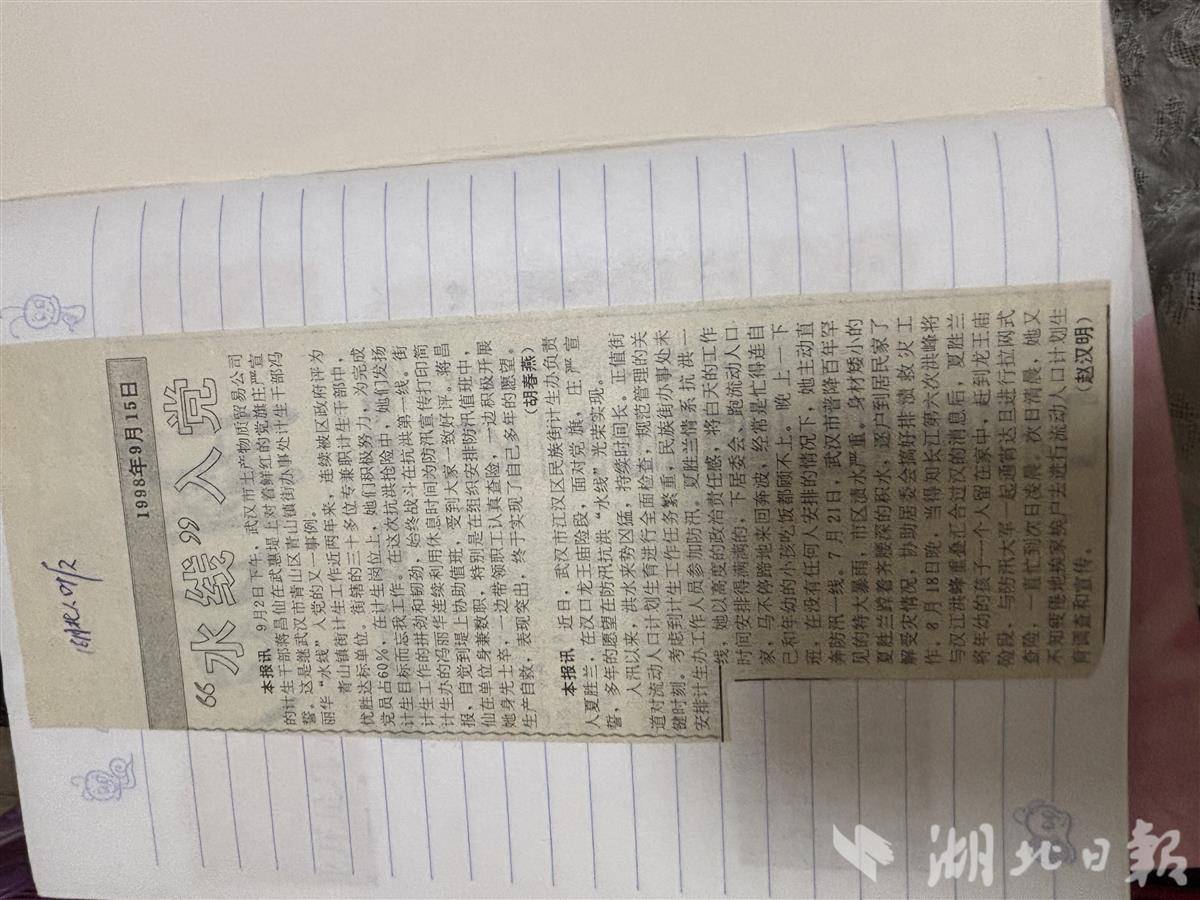 1998年9月15日
“水线”入党
本报讯 9月2日下午，武汉市土产物质贸易公司
的计生干部蒋昌仙在武惠堤上对着鲜红的党旗庄严宣
誓。这是继武汉市青山区青山镇街办事处计生干部冯
丽华“水线”入党的又一事例。
青山镇街计生工作近两年来，连续被区政府评为
优胜达标单位。街辖的三十多位专兼职计生干部中，
党员占60%，在计生岗位上，她们积极努力，为完成
计生目标而忘我工作。在这次抗洪抢险中，她们发扬
计生工作的拼劲和韧劲，始终战斗在抗洪第一线。街
计生办的冯丽华连续利用休息时间为防汛宣传打印简
报，自觉到堤上协助值班，受到大家一致好评。蒋昌
仙在单位身兼数职，特别是在组织安排防汛值班中，
她身先士卒，一边带领职工认真查险，一边积极开展
生产自救，表现突出，终于实现了自己多年的愿望。
（胡春燕）
本报讯 近日，武汉市江汉区民族街计生办负责
人夏胜兰，在汉口龙王庙险段，面对党旗，庄严宣
誓，多年的愿望在防汛抗洪“水线”光荣实现。
入汛以来，洪水来势凶猛，持续时间长。正值街
道对流动人口计划生育进行全面检查，规范管理的关
键时刻。考虑到计生工作任务繁重，民族街办事处未
安排计生办工作人员参加防汛。夏胜兰情系抗洪一
线，她以高度的政治责任感，将白天的工作
时间安排得满满的，下居委会、跑流动人口
家，马不停蹄地来回奔波，经常是忙得连自
己和年幼的小孩吃饭都顾不上。晚上一下
班，在没有任何人安排的情况下，她主动直
奔防汛一线。7月21日，武汉市普降百年罕
见的特大暴雨，市区渍水严重。身材矮小的
夏胜兰蹚着齐腰深的积水，逐户到居民家了
解受灾情况，协助居委会搞好排渍救灾工
作。8月18日晚，当得知长江第六次洪峰将
与汉江洪峰重叠汇合过汉的消息后，夏胜兰
将年幼的孩子一个人留在家中，赶到龙王庙
险段，与防汛大军一起通宵达旦进行拉网式
查险，一直忙到次日凌晨。次日清晨，她又
不知疲倦地挨家挨户去进行流动人口计划生
育调查和宣传。
（赵汉明）
湖北日报